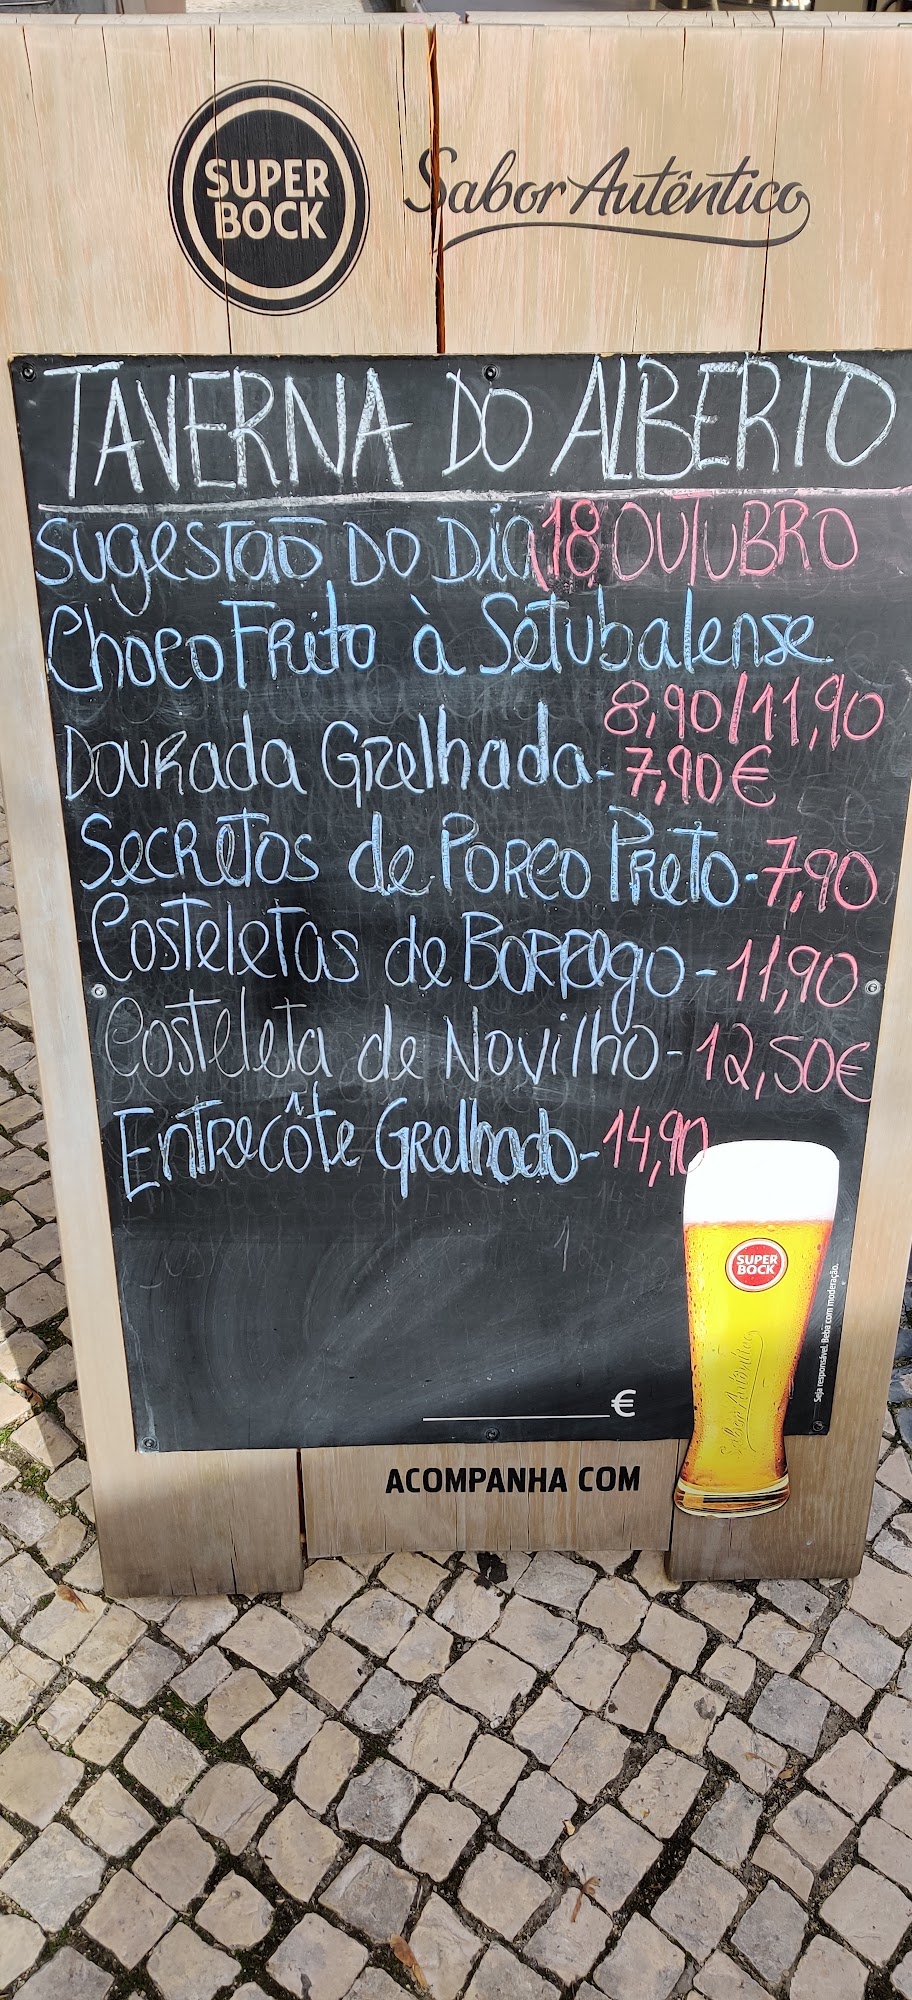 SUPER
BOCK
Sabor Autêntico
TAVERNA DO ALBERTO
Sugestão do Dia 18, OUTUBRO
Choco Frito à Setubalense
8,90/11,90
Dourada Grelhada - 7,90€
Secretos de Porco Preto - 7,90
Costeletas de Borrego - 11,90
Costeleta de Novilho - 12,50€
Entrecôte Grelhado - 14,90
SUPER
BOCK
Sabor Autêntico
Seja responsável. Beba com moderação.
€
ACOMPANHA COM